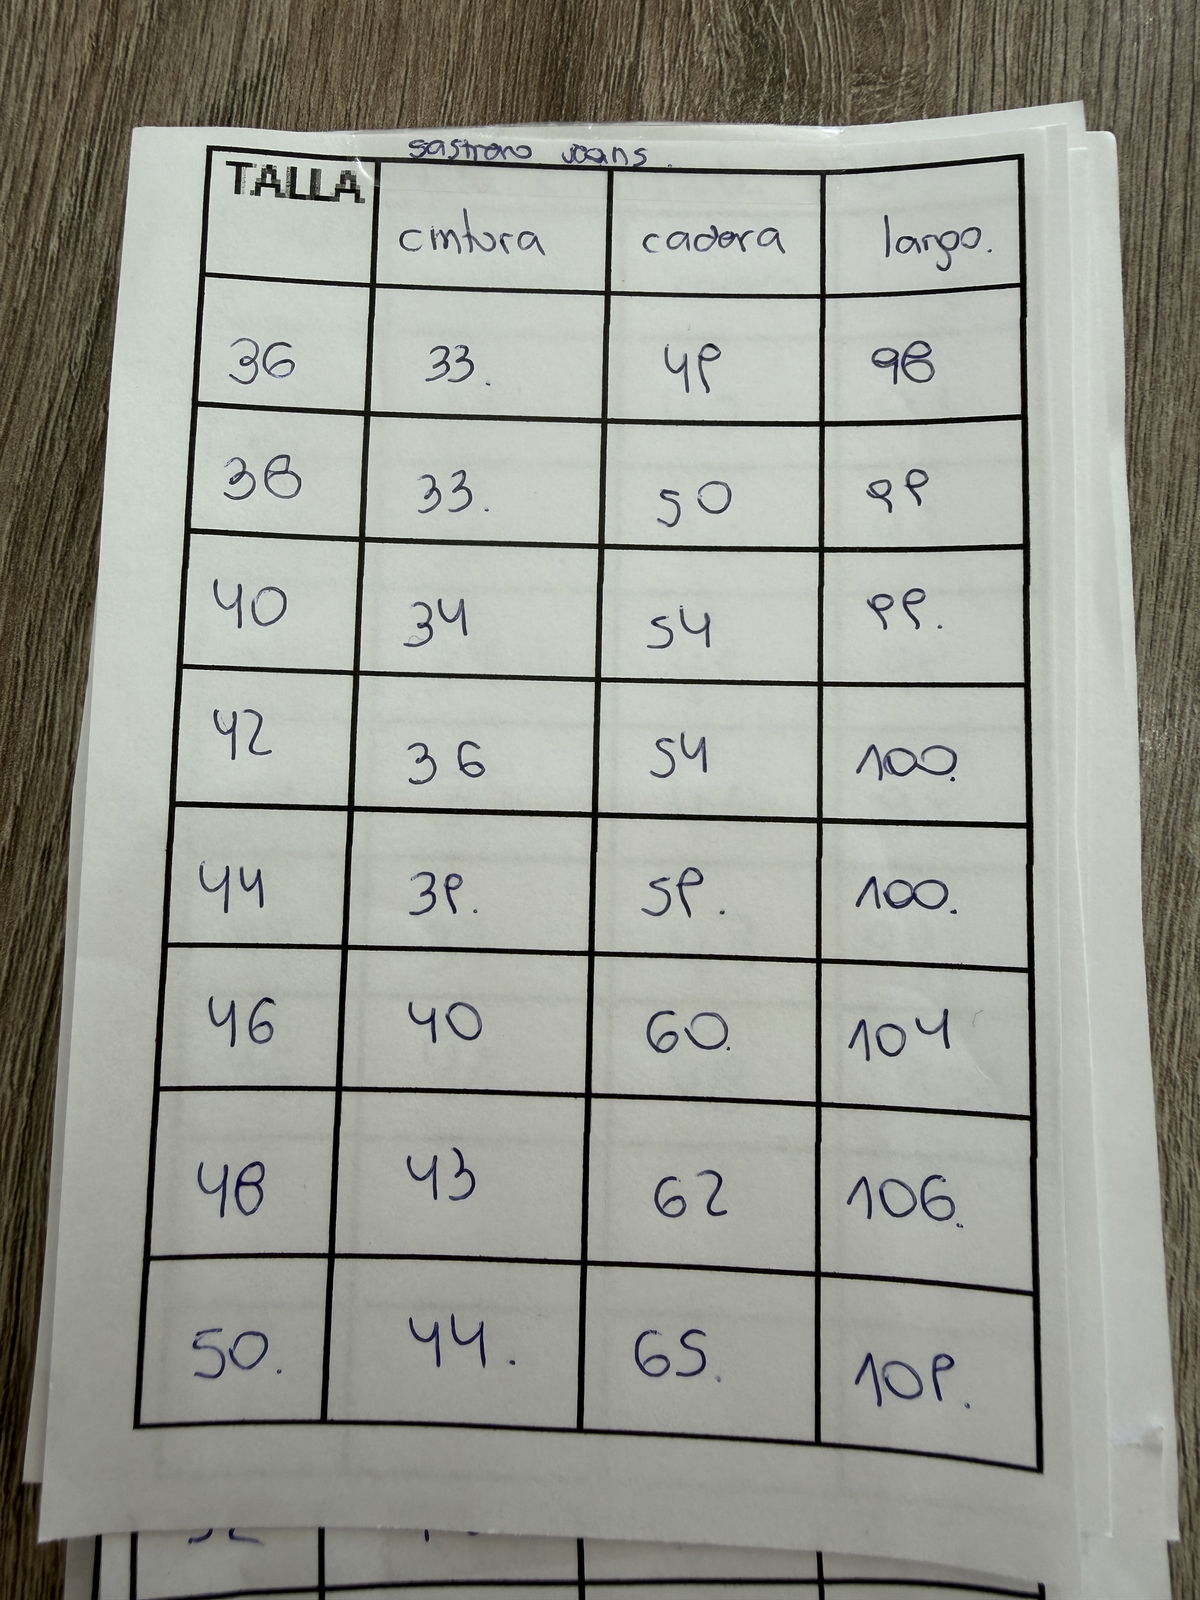 sastrero jeans.
TALLA cintura cadera largo.
36 33. 49 98
38 33. 50 99
40 34 54 99.
42 36 54 100.
44 39. 59. 100.
46 40 60. 104
48 43 62 106.
50. 44. 65. 109.